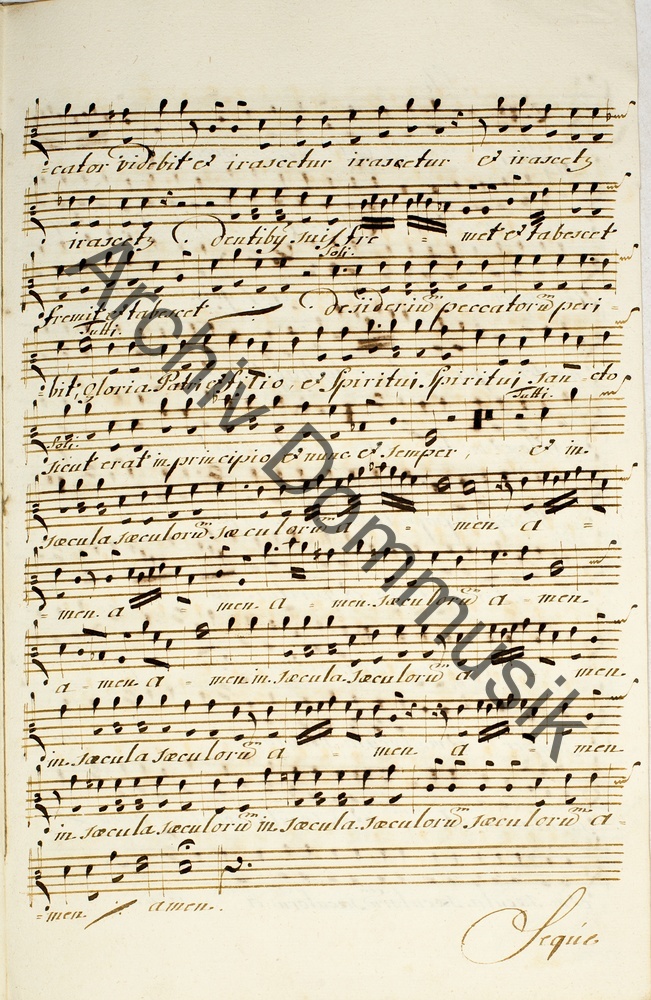 =cator videbit et irascetur irascetur et irascet9
irascet9 dentib9 suis fre = met et tabescet
Soli:
fremit et tabescet desideriu͞m peccatoru͞m peri =
Tutti.
bit, Gloria Patri et filio, et Spiritui Spiritui san = cto
Soli: Tutti.
sicut erat in principio et nunc et semper, et in.
sæcula sæculoru͞m sæculoru͞m a = men a =
men. a = men. a = men. sæculoru͞m a = men.
a = men a = men in sæcula sæculoru͞m a = men.
in sæcula sæculoru͞m a = men a = men
in sæcula sæculoru͞m in sæcula sæculoru͞m sæculoru͞m a =
=men. amen.
Seque
Archiv Dommusik